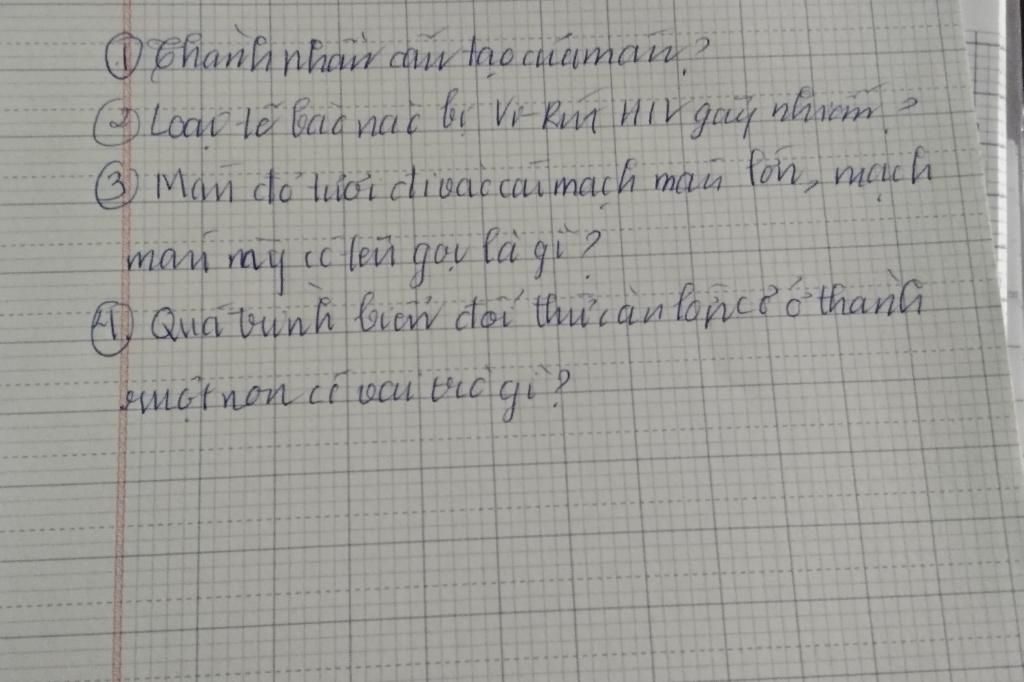 ① Thành phần cấu tạo của máu?
② Loại tế bào nào bị Vi-Rút HIV gây nhiễm?
③ Máu đỏ tươi đi vào các mạch máu lớn, mạch
máu này có tên gọi là gì?
④ Quá trình biến đổi thức ăn ở thành
ruột non có vai trò gì?